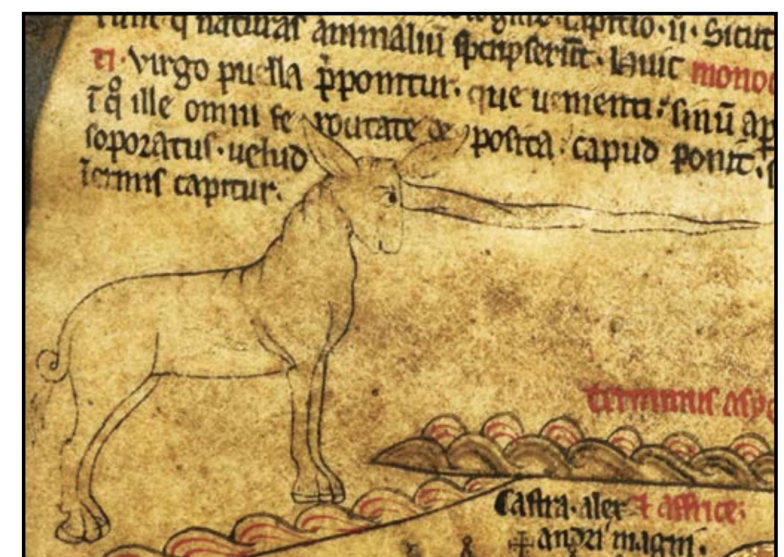 q naturas animaliū scripserūt. Huic
ti. virgo puella p̄ponitur. que venienti: sinū ap
ī q° ille omni fe rocitate de posita: capud ponit.
soporatus. uelud
īermis capitur.
terminus asy
Castra. alex & affrice:
andri magni.